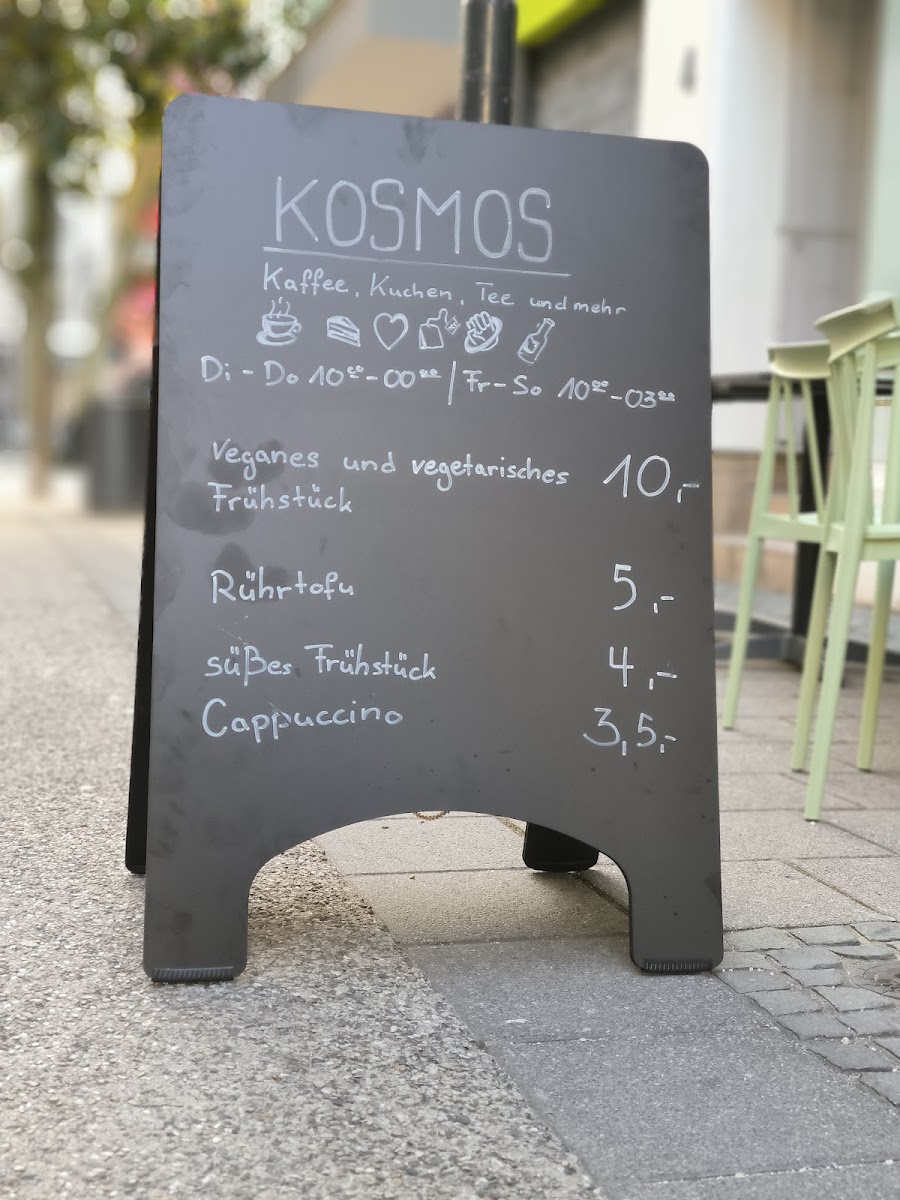 KOSMOS
Kaffee, Kuchen, Tee und mehr
Di - Do 10⁰⁰-00⁰⁰ | Fr - So 10⁰⁰-03⁰⁰
Veganes und vegetarisches 10,-
Frühstück
Rührtofu 5,-
süßes Frühstück 4,-
Cappuccino 3,5,-